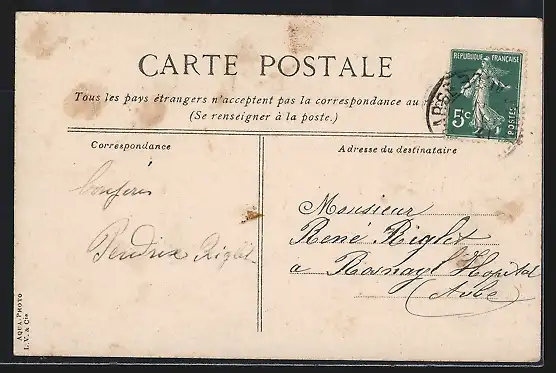 CARTE POSTALE
RÉPUBLIQUE FRANÇAISE
5c POSTES
Tous les pays étrangers n'acceptent pas la correspondance au
(Se renseigner à la poste.)
Correspondance
Adresse du destinataire
Riglet
Monsieur
René Riglet
a Rosnay l'Hopital
(Aube)
AQUA-PHOTO
L. V. & Cie